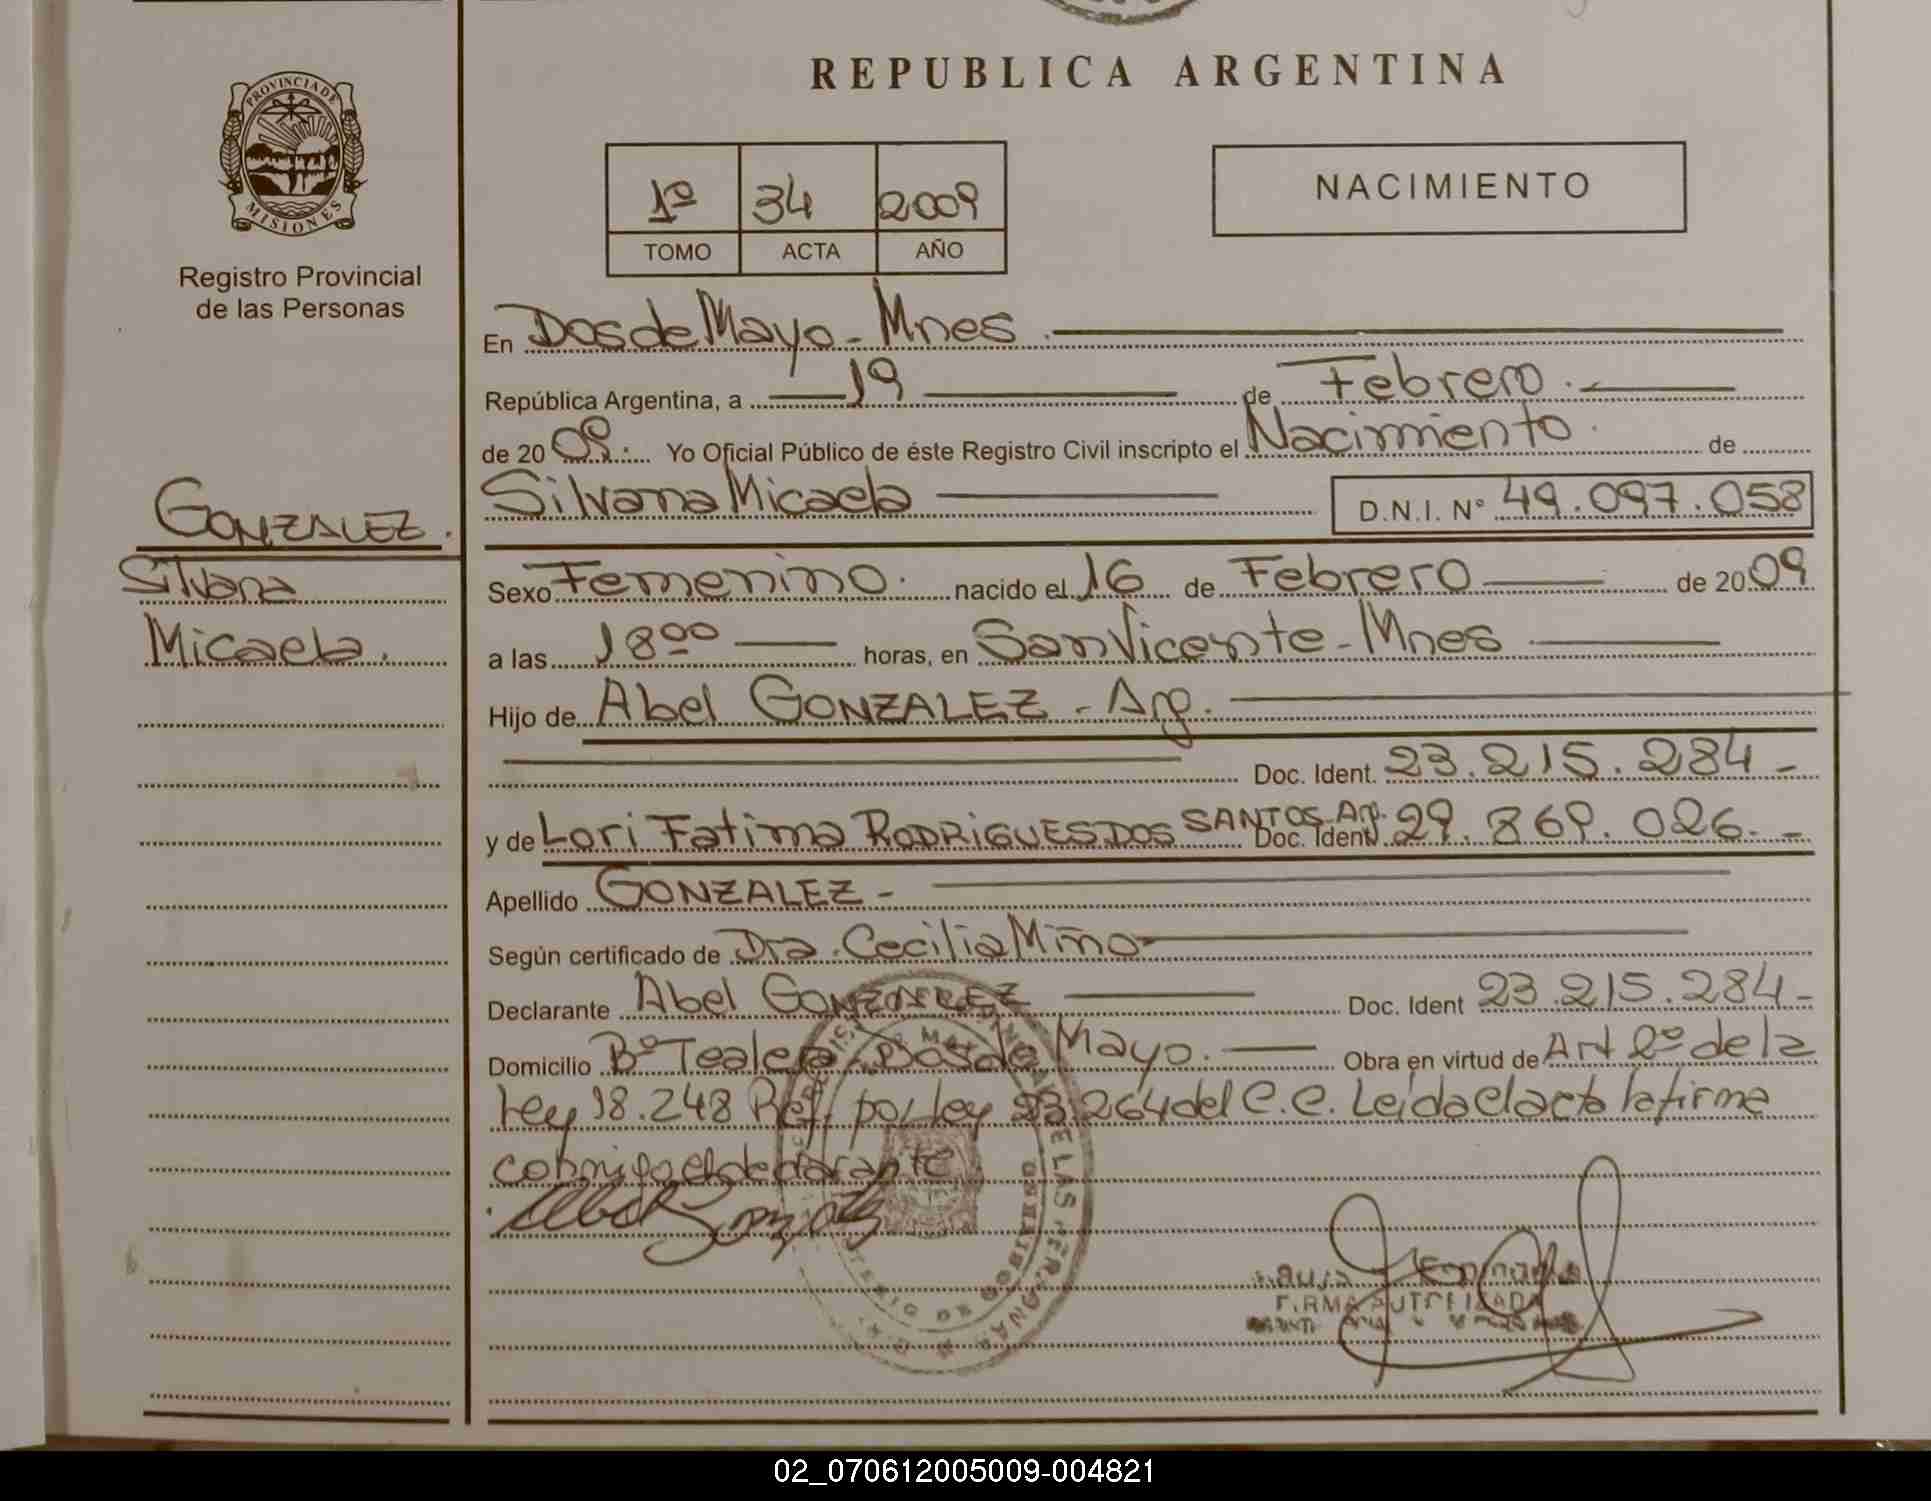 REPUBLICA ARGENTINA
PROVINCIA DE
MISIONES
Registro Provincial
de las Personas
1º 34 2009
TOMO ACTA AÑO
NACIMIENTO
GONZALEZ.
Silvana
Micaela.
En Dos de Mayo - Mnes.
República Argentina, a 19 de Febrero.
de 2009. Yo Oficial Público de éste Registro Civil inscripto el Nacimiento. de
Silvana Micaela D.N.I. Nº 49.097.058
Sexo Femenino. nacido el 16 de Febrero de 2009
a las 18 00 horas, en San Vicente - Mnes
Hijo de Abel GONZALEZ - Arg.
Doc. Ident. 23.215.284 -
y de Lori Fatima RODRIGUES DOS SANTOS - Arg. Doc. Ident. 29.869.026. -
Apellido GONZALEZ -
Según certificado de Dra. Cecilia Miño
Declarante Abel GONZALEZ Doc. Ident 23.215.284 -
Domicilio Bº Tealera - Dos de Mayo. Obra en virtud de Art 2º de la
Ley 18.248 Ref. por ley 23.264 del C.C. Leída el acta la firma
conmigo el declarante
Abel Gonzalez
FIRMA AUTORIZADA
02_070612005009-004821